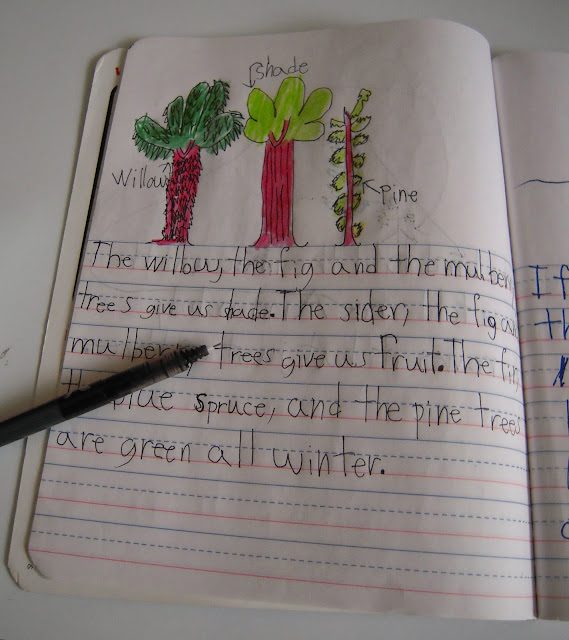 shade
Willow
Pine
The willow, the fig and the mulber
trees give us shade. The sider, the fig an
mulberry trees give us fruit. The fir,
the blue spruce, and the pine trees
are green all winter.
I f
th